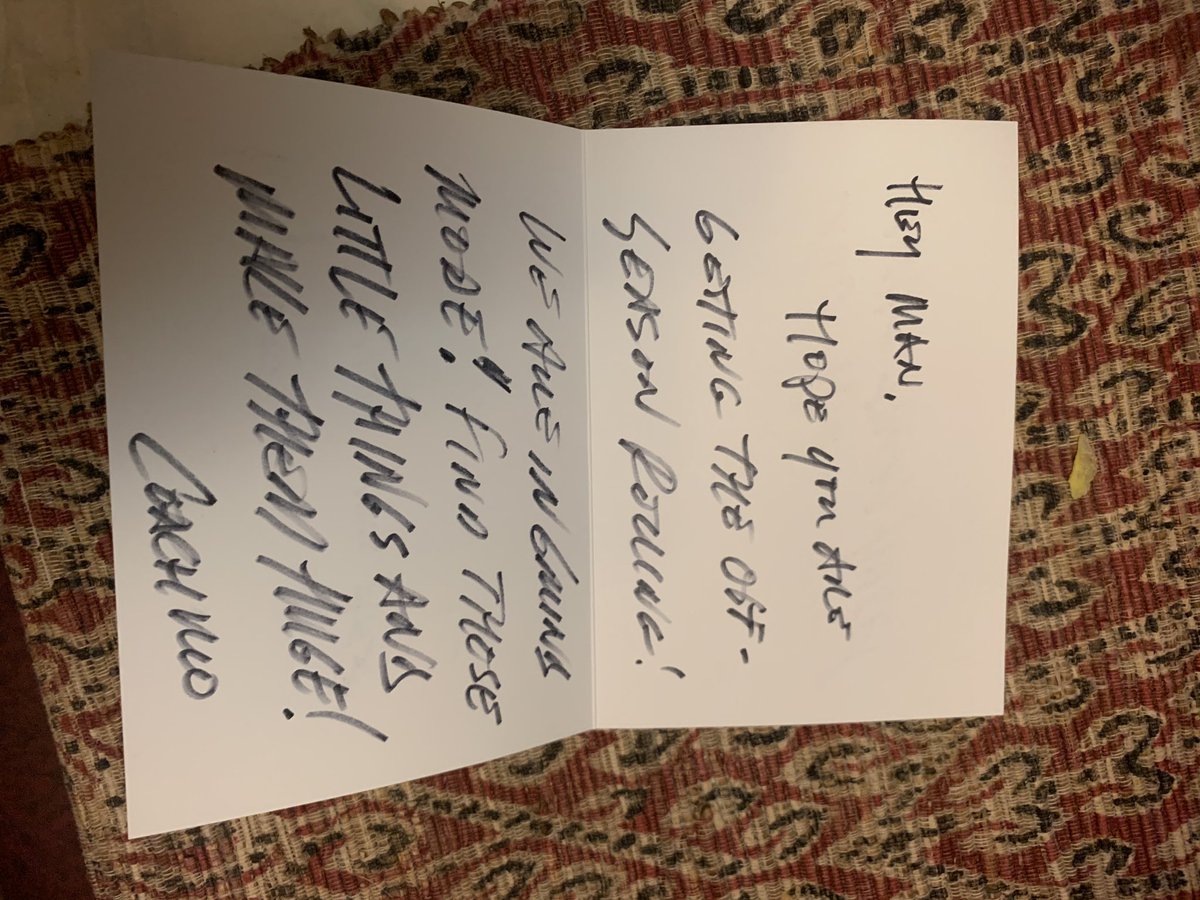 HEY MAN,
HOPE YOU ARE
GETTING THE OFF-
SEASON ROLLING!
WE ARE IN GRIND
MODE! FIND THOSE
LITTLE THINGS AND
MAKE THEM HUGE!
COACH